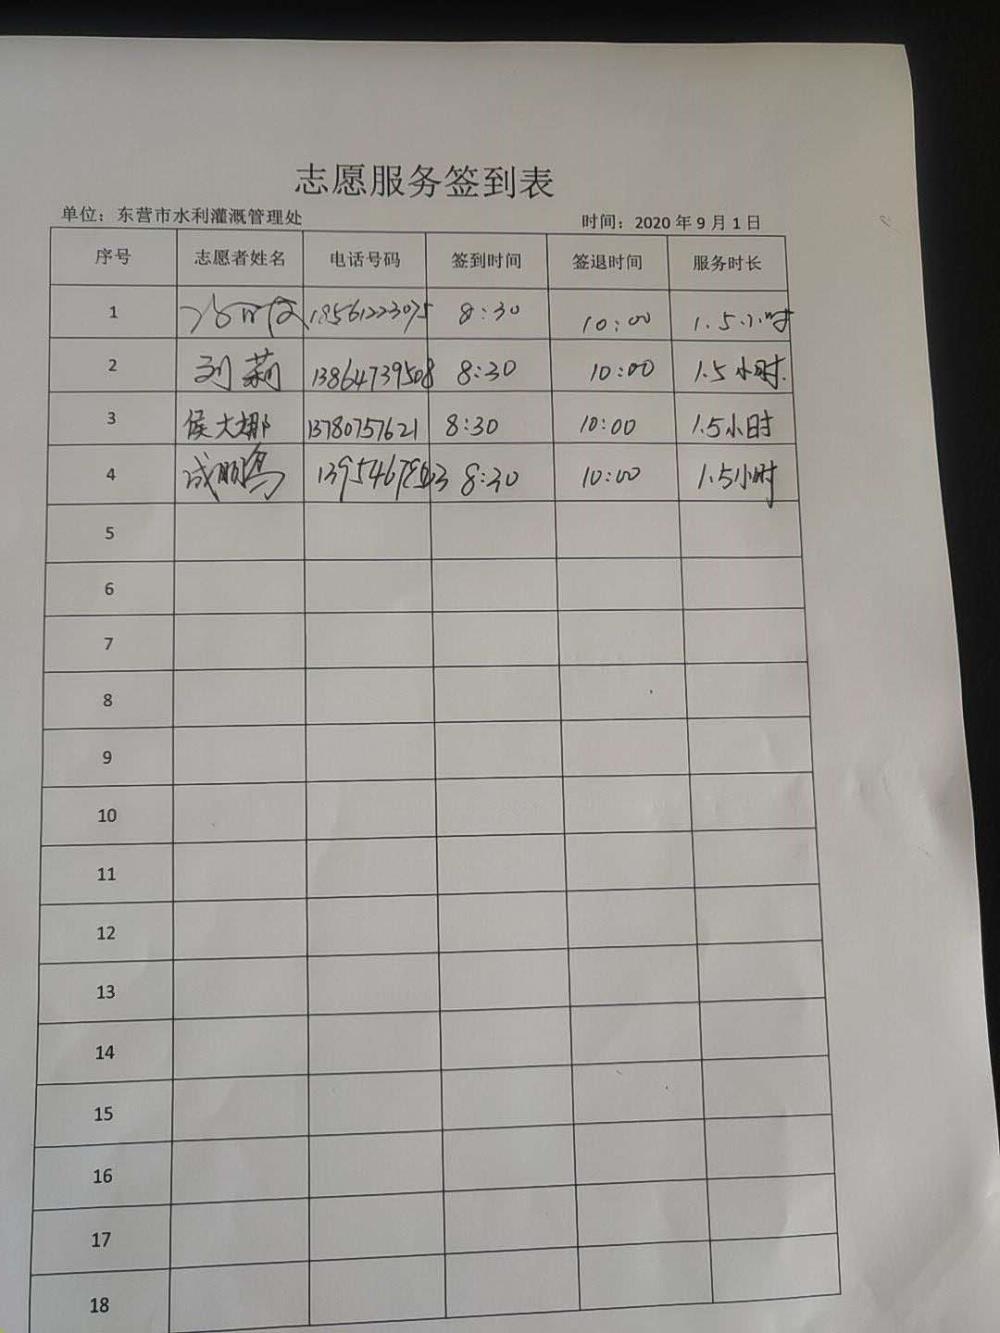 志愿服务签到表
单位：东营市水利灌溉管理处 时间：2020 年 9 月 1 日
序号 志愿者姓名 电话号码 签到时间 签退时间 服务时长
1 18561223075 8:30 10:00 1.5小时
2 刘莉 13864739508 8:30 10:00 1.5小时.
3 侯大娜 13780757621 8:30 10:00 1.5小时
4 8:30 10:00 1.5小时
5
6
7
8
9
10
11
12
13
14
15
16
17
18